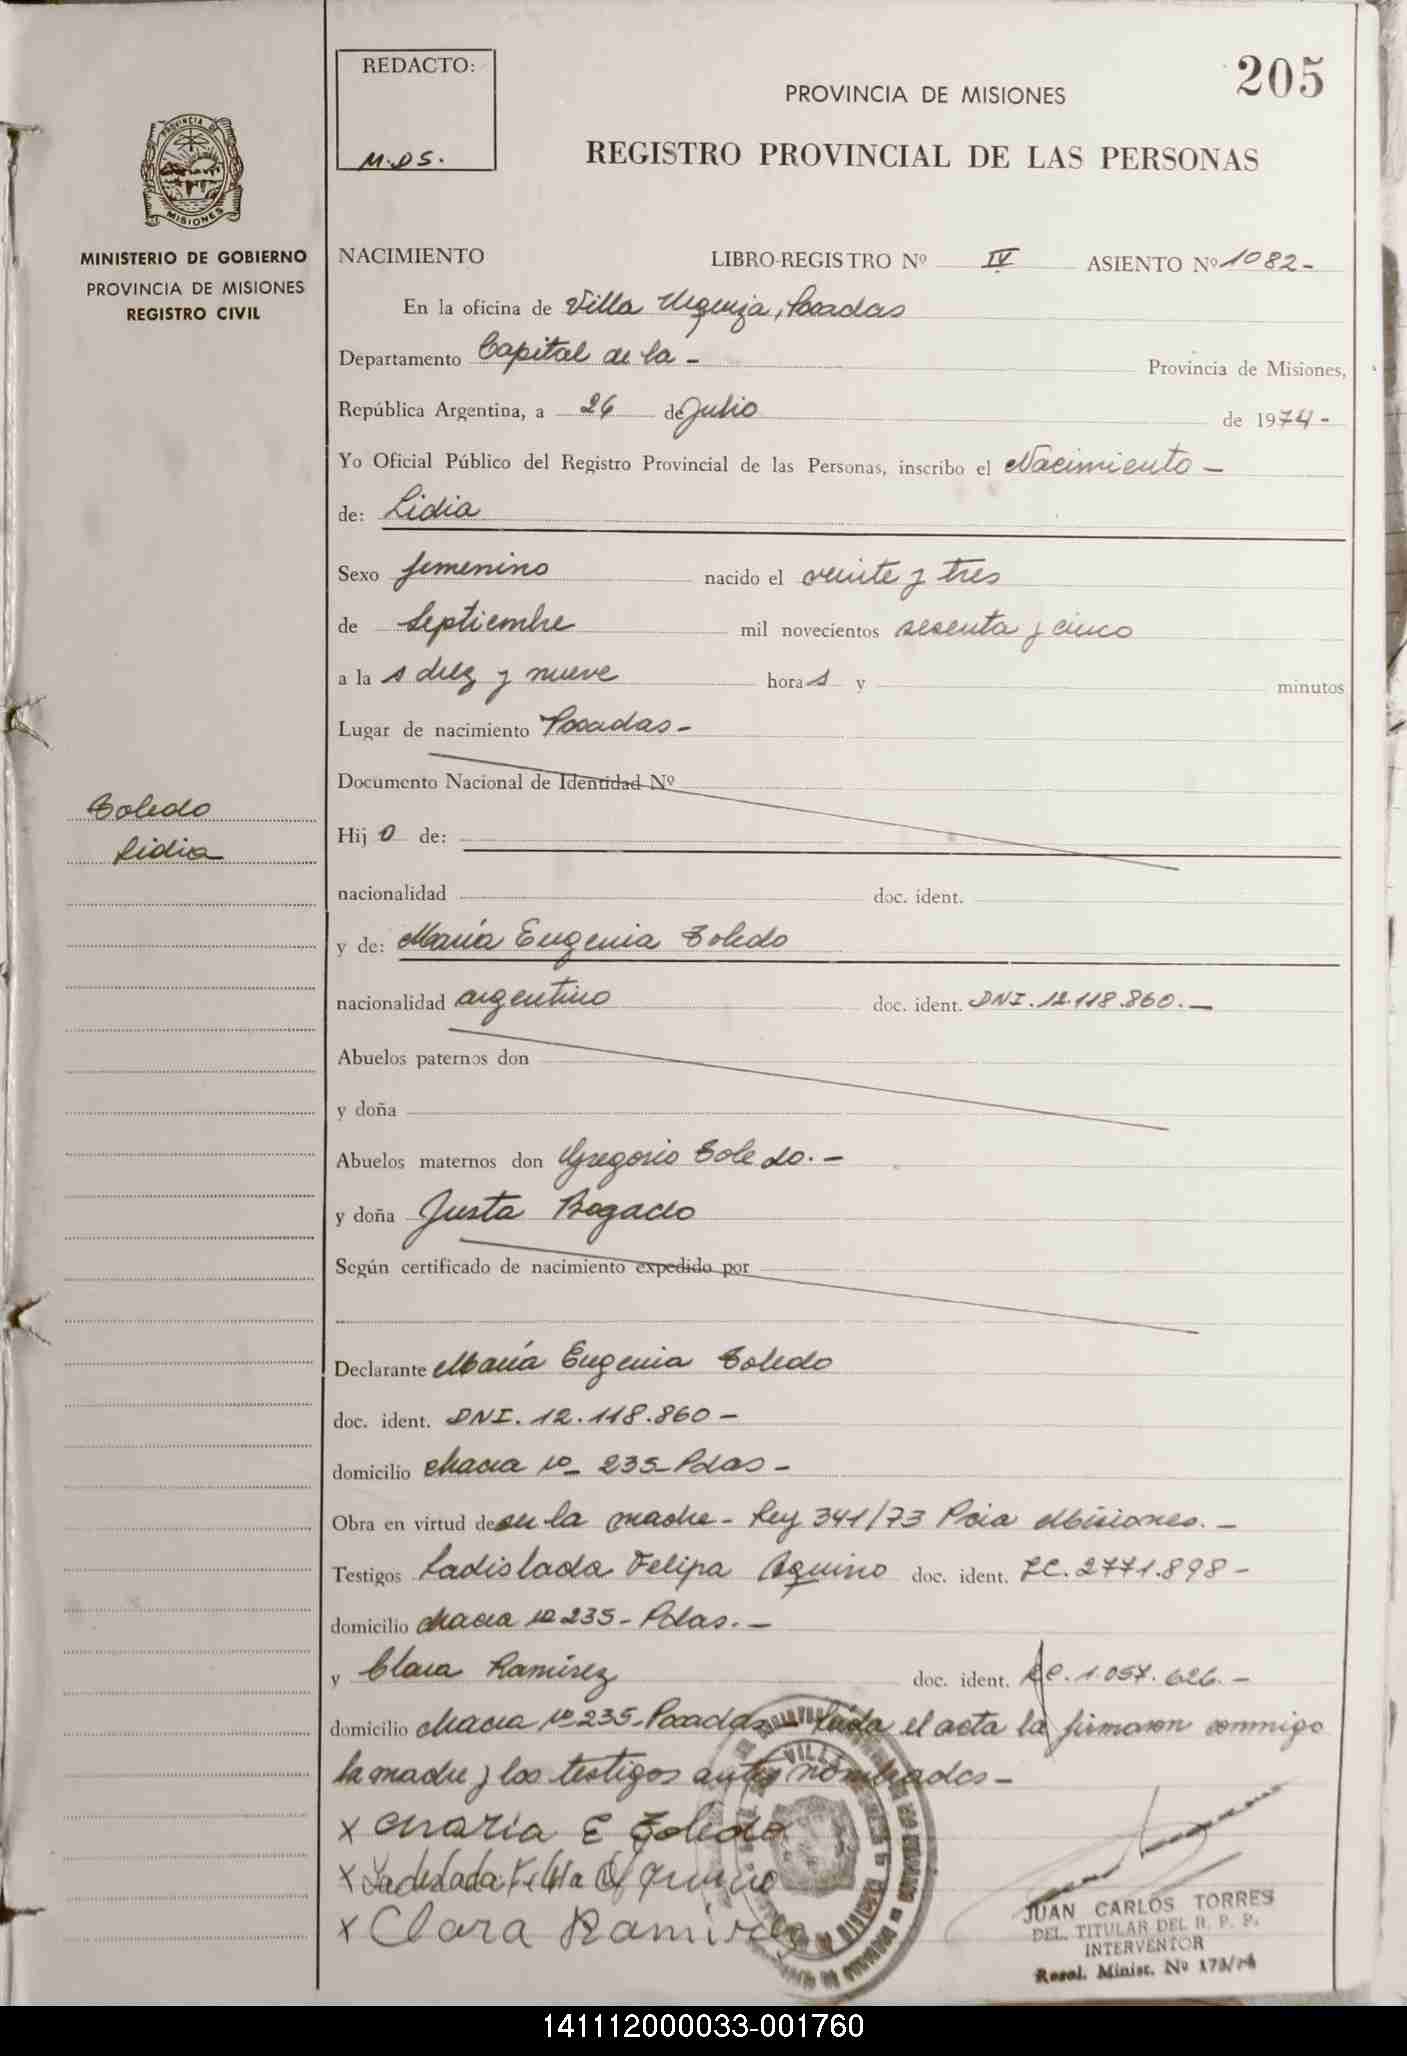 205
REDACTO:
M.DS.
PROVINCIA DE MISIONES
REGISTRO PROVINCIAL DE LAS PERSONAS
PROVINCIA DE
MISIONES
MINISTERIO DE GOBIERNO
PROVINCIA DE MISIONES
REGISTRO CIVIL
NACIMIENTO LIBRO-REGISTRO Nº IV ASIENTO Nº 1082-
En la oficina de Villa Urquiza, Posadas
Departamento Capital de la - Provincia de Misiones,
República Argentina, a 26 de Julio de 1974-
Yo Oficial Público del Registro Provincial de las Personas, inscribo el Nacimiento -
de: Lidia
Sexo femenino nacido el veinte y tres
de Septiembre mil novecientos sesenta y cinco
a la s diez y nueve hora s y minutos
Lugar de nacimiento Posadas -
Documento Nacional de Identidad Nº
Toledo
Lidia
Hij o de:
nacionalidad doc. ident.
y de: María Eugenia Toledo
nacionalidad argentino doc. ident. DNI. 12.118.860. -
Abuelos paternos don
y doña
Abuelos maternos don Gregorio Toledo. -
y doña Justa Bogado
Según certificado de nacimiento expedido por
Declarante María Eugenia Toledo
doc. ident. DNI. 12.118.860 -
domicilio chacra nº 235 Pdas -
Obra en virtud de ser la madre - Ley 341/73 Pcia Misiones. -
Testigos Ladislada Felipa Aquino doc. ident. LC. 2771.898 -
domicilio chacra nº 235 - Pdas. -
y Clara Ramírez doc. ident. LC. 1.057.626. -
domicilio chacra nº 235 - Posadas - Leída el acta la firmaron conmigo
la madre y los testigos antes nombrados -
x Maria E Toledo
x Ladislada Felipa Aquino
x Clara Ramirez
VILLA
JUAN CARLOS TORRES
DEL. TITULAR DEL R. P. P.
INTERVENTOR
Resol. Minist. Nº 173/74
141112000033-001760